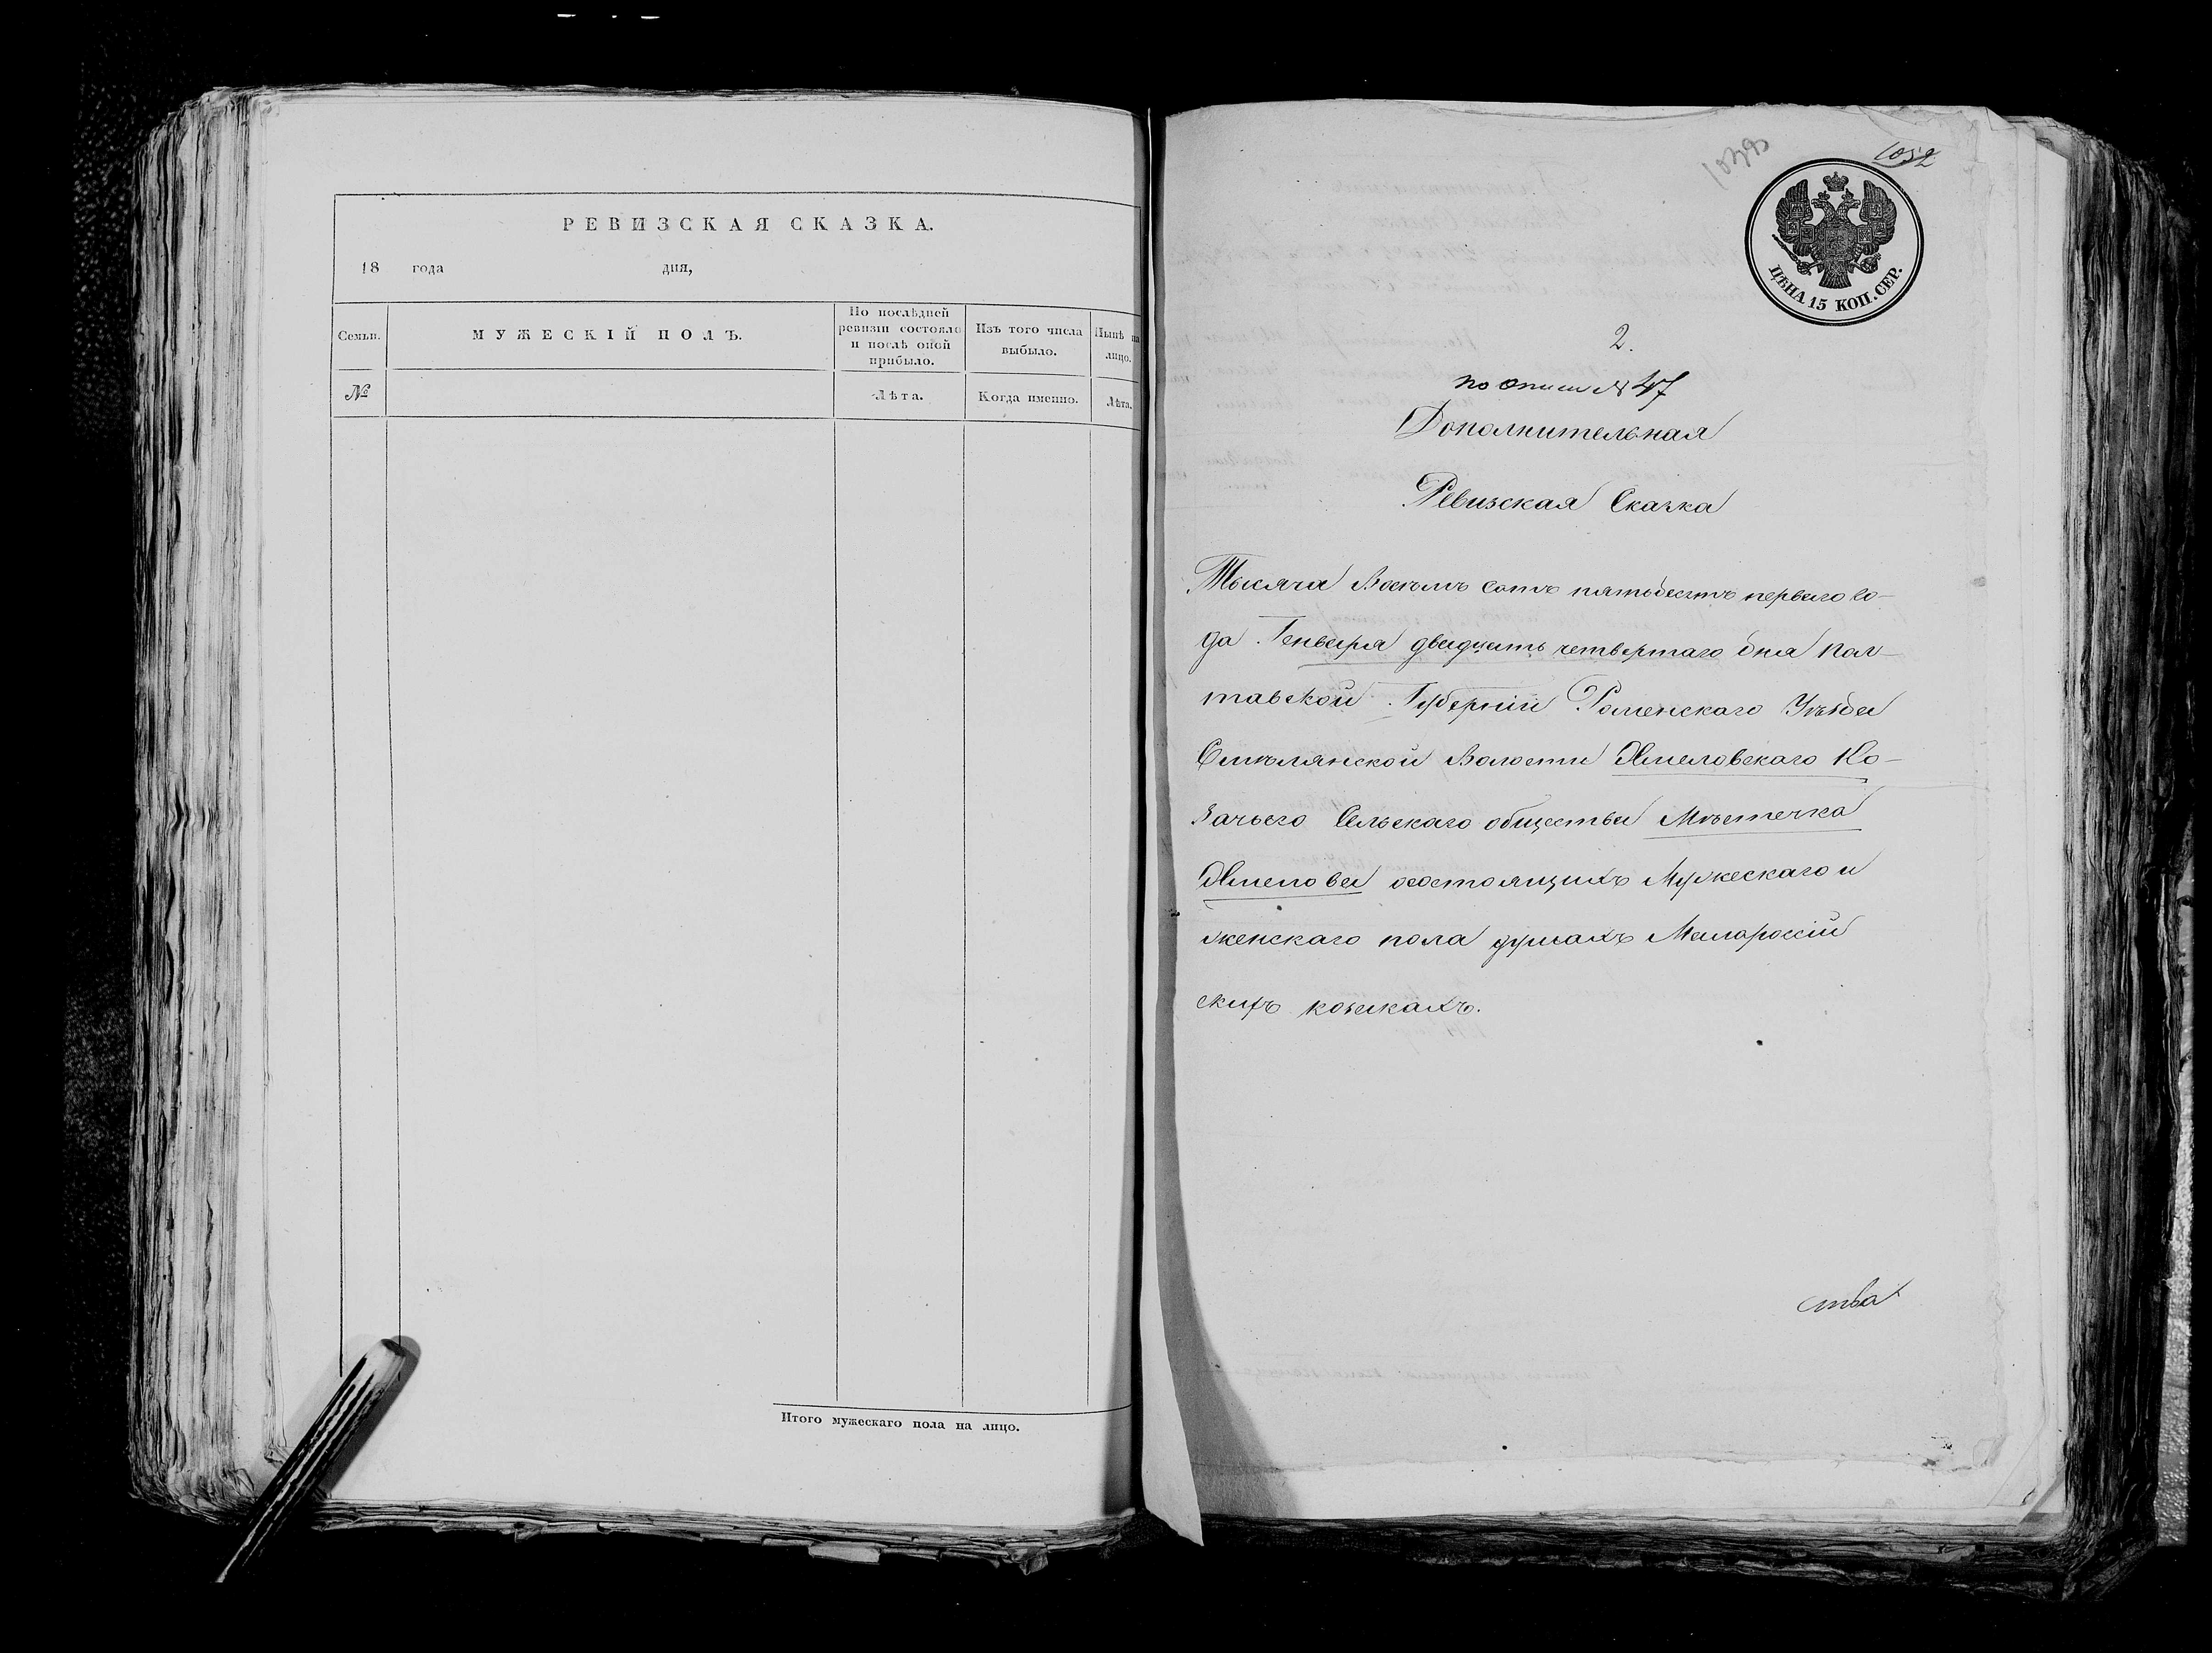 РЕВИЗСКАЯ СКАЗКА.
18 года дня,
Семьи.
МУЖЕСКІЙ ПОЛЪ.
По послѣдней
ревизіи состояло
и послѣ оной
прибыло.
Изъ того числа
выбыло.
Нынѣ на
лицо.
№
Лѣта.
Когда именно.
Лѣта.
Итого мужескаго пола на лицо.
1052
ЦѢНА 15 КОП. СЕР.
2.
по описи № 47
Дополнительная
Ревизская Сказка
Тысяча Восемь сотъ пятьдесятъ перваго го-
да Генваря двадцать четвертаго дня Пол-
тавской Губерніи Роменскаго Уѣзда
Смѣлянской Волости Хмеловскаго Ко-
зачьего Сельскаго общества Мѣстечка
Хмелова состоящихъ Мужескаго и
женскаго пола душахъ Малороссій
скихъ козакахъ.
ства